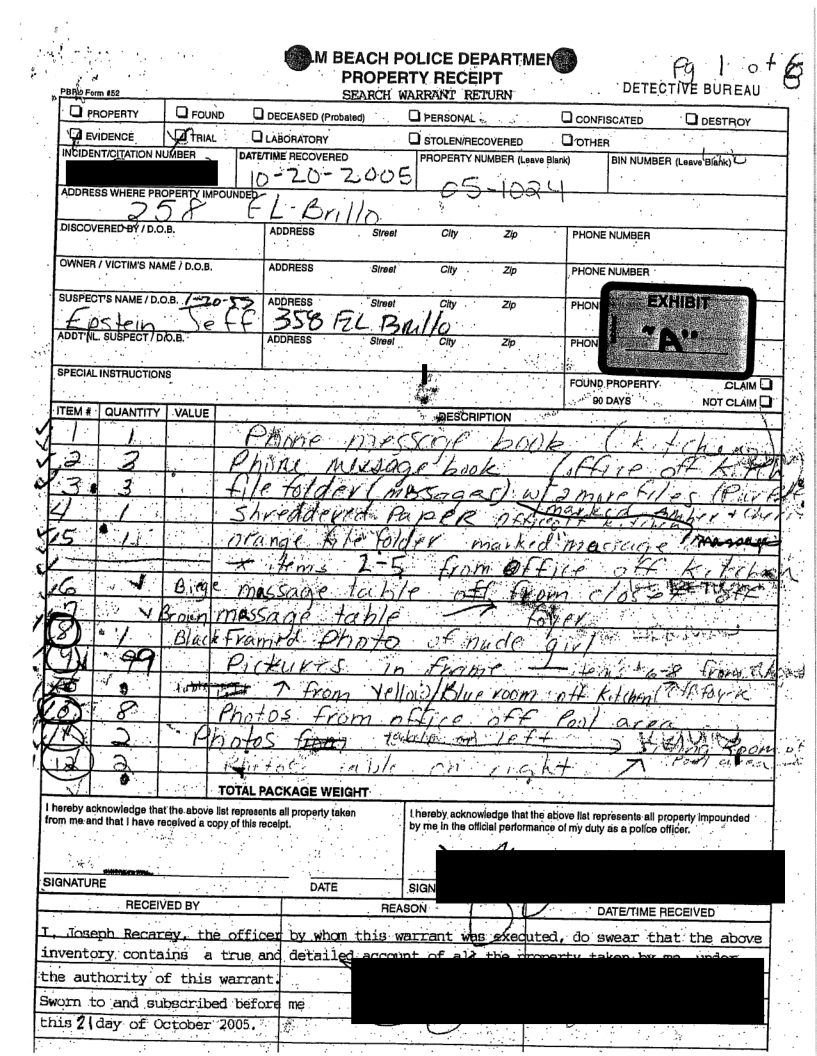 M BEACH POLICE DEPARTMEN
PROPERTY RECEIPT
SEARCH WARRANT RETURN
Pg 1 of 6
DETECTIVE BUREAU
PBPD Form #52
PROPERTY FOUND DECEASED (Probated) PERSONAL CONFISCATED DESTROY
EVIDENCE TRIAL LABORATORY STOLEN/RECOVERED OTHER
INCIDENT/CITATION NUMBER DATE/TIME RECOVERED PROPERTY NUMBER (Leave Blank) BIN NUMBER (Leave Blank)
10-20-2005 05-1024
ADDRESS WHERE PROPERTY IMPOUNDED
258 EL-Brillo
DISCOVERED BY / D.O.B. ADDRESS Street City Zip PHONE NUMBER
OWNER / VICTIM'S NAME / D.O.B. ADDRESS Street City Zip PHONE NUMBER
SUSPECT'S NAME / D.O.B. 1-20-53 ADDRESS Street City Zip PHON
Epstein Jeff 358 EL Brillo
EXHIBIT
"A"
ADDT'NL. SUSPECT / D.O.B. ADDRESS Street City Zip PHON
SPECIAL INSTRUCTIONS FOUND PROPERTY CLAIM
90 DAYS NOT CLAIM
ITEM # QUANTITY VALUE DESCRIPTION
1 1 Phone message book (kitchen)
2 Phone message book (office off
3 3 file folder (messages) w/ 2 more files
marked Amber +
4 1 Shreddered Paper office off kitchen
5 1 orange file folder marked massage
items 2-5 from office off kitchen
6 Biege massage table from closet off
7 Brown massage table foyer
8 1 Black framed Photo of nude girl
9 Pickures in frame 6-8 from
↑ from Yellow/Blue room off kitchen
10 8 Photos from office off Pool area
11 2 Photos table on left
Pool area
12 2 Photos table on right
TOTAL PACKAGE WEIGHT
I hereby acknowledge that the above list represents all property taken
from me and that I have received a copy of this receipt.
I hereby acknowledge that the above list represents all property impounded
by me in the official performance of my duty as a police officer.
SIGNATURE DATE SIGN
RECEIVED BY REASON DATE/TIME RECEIVED
I, Joseph Recarey, the officer by whom this warrant was executed, do swear that the above
inventory contains a true and detailed account of all the property taken by me under
the authority of this warrant.
Sworn to and subscribed before me
this 21 day of October 2005.